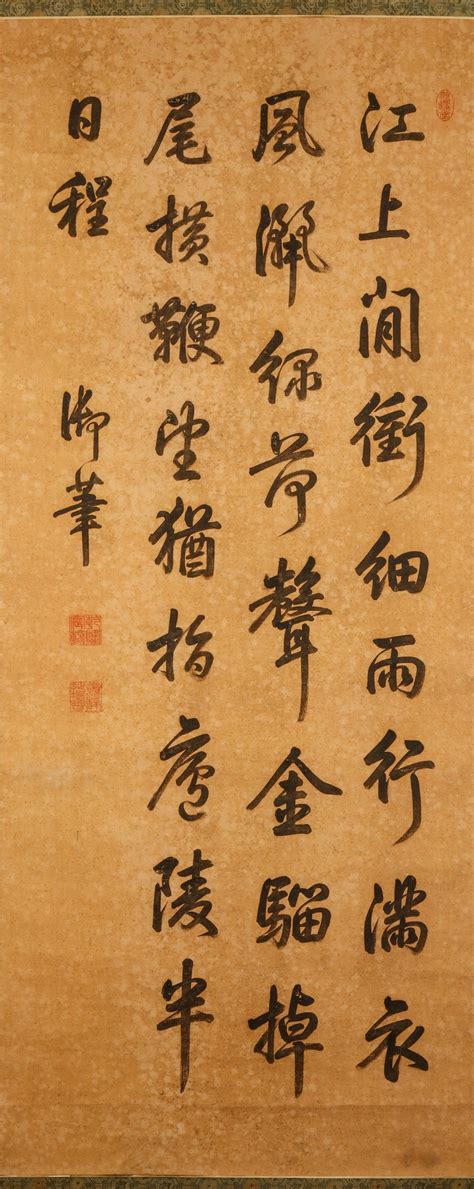 江上閒衝細雨行滿衣
風灑綠荷聲金騮掉
尾橫鞭望猶指廬陵半
日程
御筆